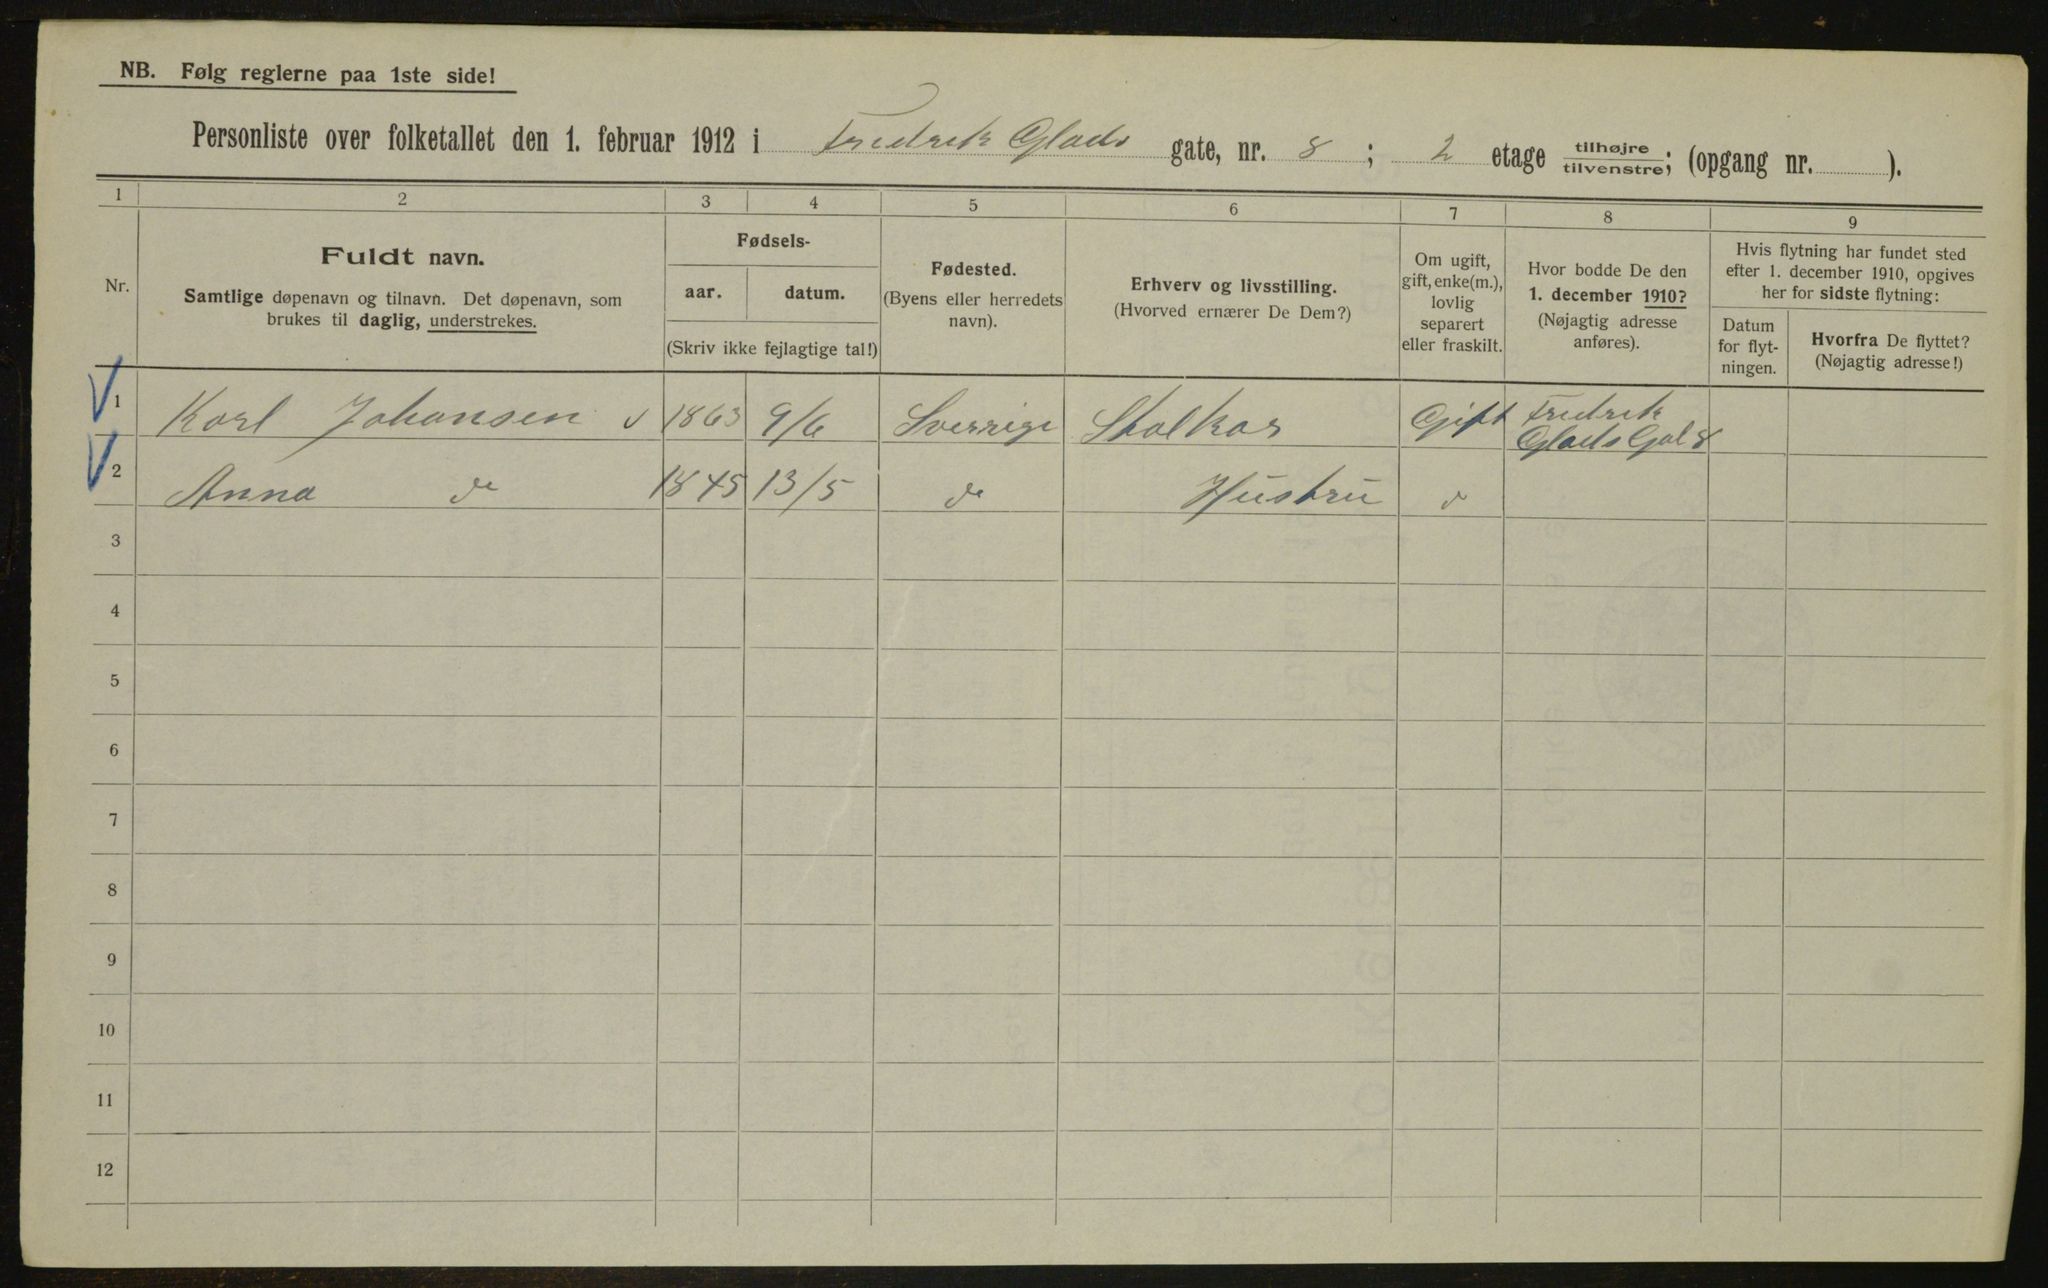 NB. Følg reglerne paa 1ste side!
Personliste over folketallet den 1. februar 1912 i Fredrik Glads gate, nr. 8; 2 etage tilhøjre/tilvenstre; (opgang nr. ).
1 2 3 4 5 6 7 8 9
Nr.
Fuldt navn.
Samtlige døpenavn og tilnavn. Det døpenavn, som
brukes til daglig, understrekes.
Fødsels-
aar. datum.
(Skriv ikke fejlagtige tal!)
Fødested.
(Byens eller herredets
navn).
Erhverv og livsstilling.
(Hvorved ernærer De Dem?)
Om ugift,
gift, enke(m.),
lovlig
separert
eller fraskilt.
Hvor bodde De den
1. december 1910?
(Nøjagtig adresse
anføres).
Hvis flytning har fundet sted
efter 1. december 1910, opgives
her for sidste flytning:
Datum
for flyt-
ningen.
Hvorfra De flyttet?
(Nøjagtig adresse!)
1 Karl Johansen 1863 9/6 Sverrige Gift Fredrik
Glads Gal 8
2 Anna do 1845 13/5 do Hustru
3
4
5
6
7
8
9
10
11
12